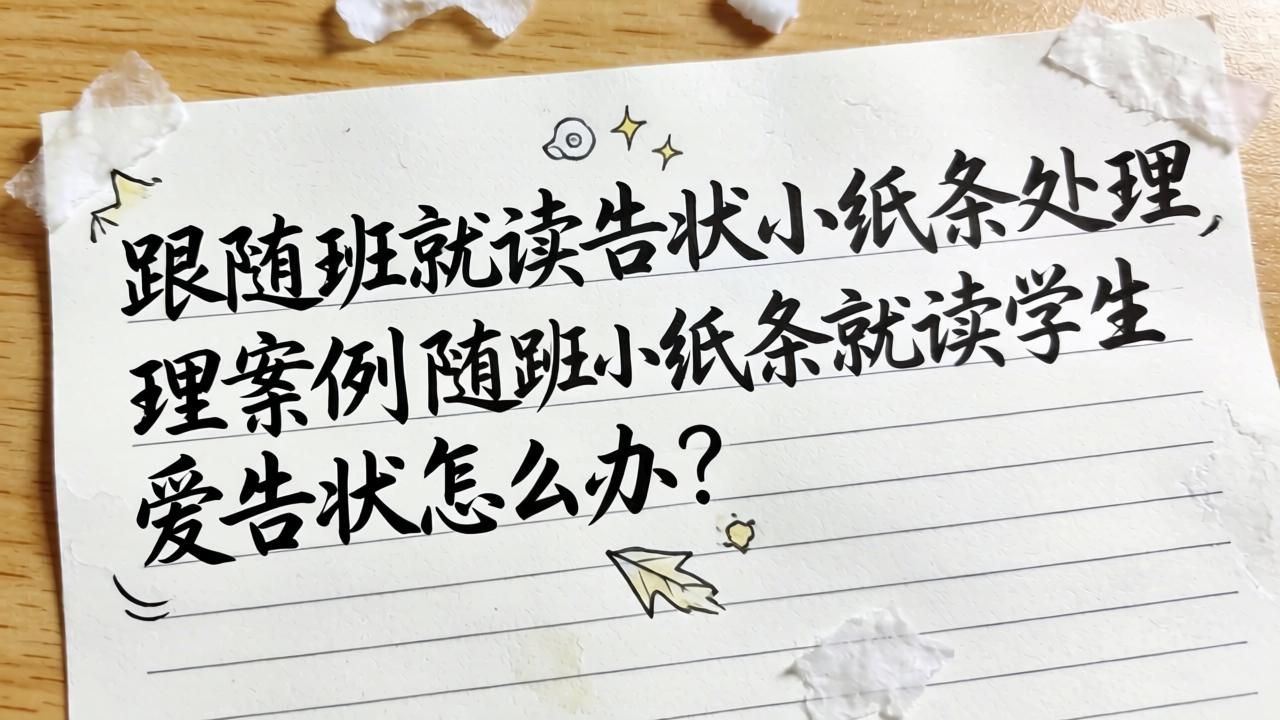 跟随班就读告状小纸条处理,
理案例随跟班小纸条就读学生
爱告状怎么办?